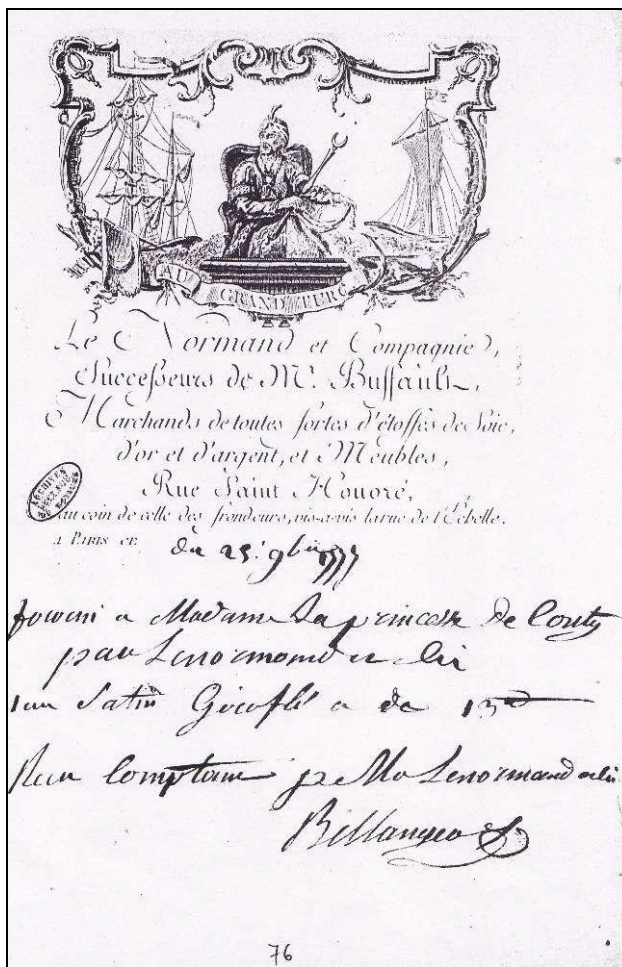 AU GRAND TURC
Le Normand et Compagnie,
Successeurs de Mr. Buffault,
Marchands de toutes sortes d'étoffes de Soie,
d'or et d'argent, et Meubles,
Rue Saint Honoré,
au coin de celle des frondeurs, vis-a-vis la rue de l'Echelle.
A PARIS CE du 25. 9bre 1775
ARCHIVES
fourni a Madame La princesse de Conty
par Lenormand et Cie
1 au Satin Giroflé a de 13
Recu Comptant pr Mrs Lenormand et Cie
76